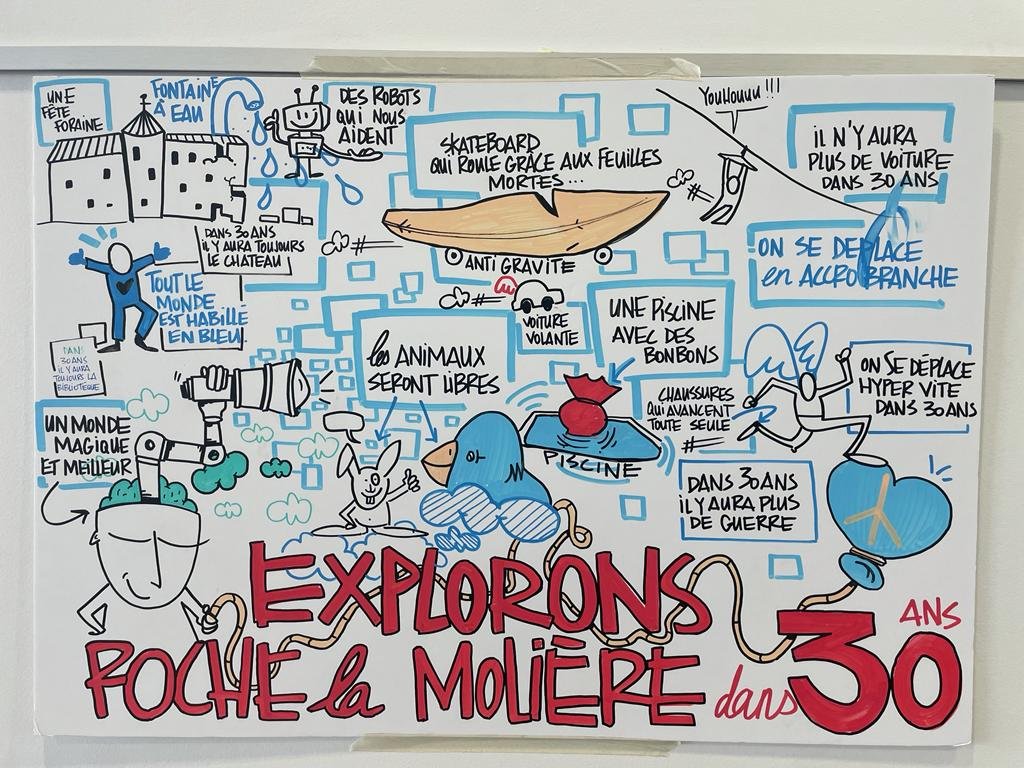 UNE
FÊTE
FORAINE
FONTAINE
À EAU
DES ROBOTS
QUI NOUS
AIDENT
SKATEBOARD
QUI ROULE GRÂCE AUX FEUILLES
MORTES...
ANTI GRAVITE
YOUHOUUU !!!
IL N'Y AURA
PLUS DE VOITURE
DANS 30 ANS
DANS 30 ANS
IL Y AURA TOUJOURS
LE CHATEAU
ON SE DEPLACE
en ACCROBRANCHE
TOUT LE
MONDE
EST HABILLÉ
EN BLEU
VOITURE
VOLANTE
UNE PISCINE
AVEC DES
BONBONS
DANS
30 ANS
IL Y AURA
TOUJOURS LA
BIBLIOTÈQUE
les ANIMAUX
SERONT LIBRES
CHAUSSURES
QUI AVANCENT
TOUTE SEULE
ON SE DÉPLACE
HYPER VITE
DANS 30 ANS
UN MONDE
MAGIQUE
ET MEILLEUR
PISCINE
DANS 30 ANS
IL Y AURA PLUS
DE GUERRE
EXPLORONS
ROCHE la MOLIÈRE dans 30 ANS